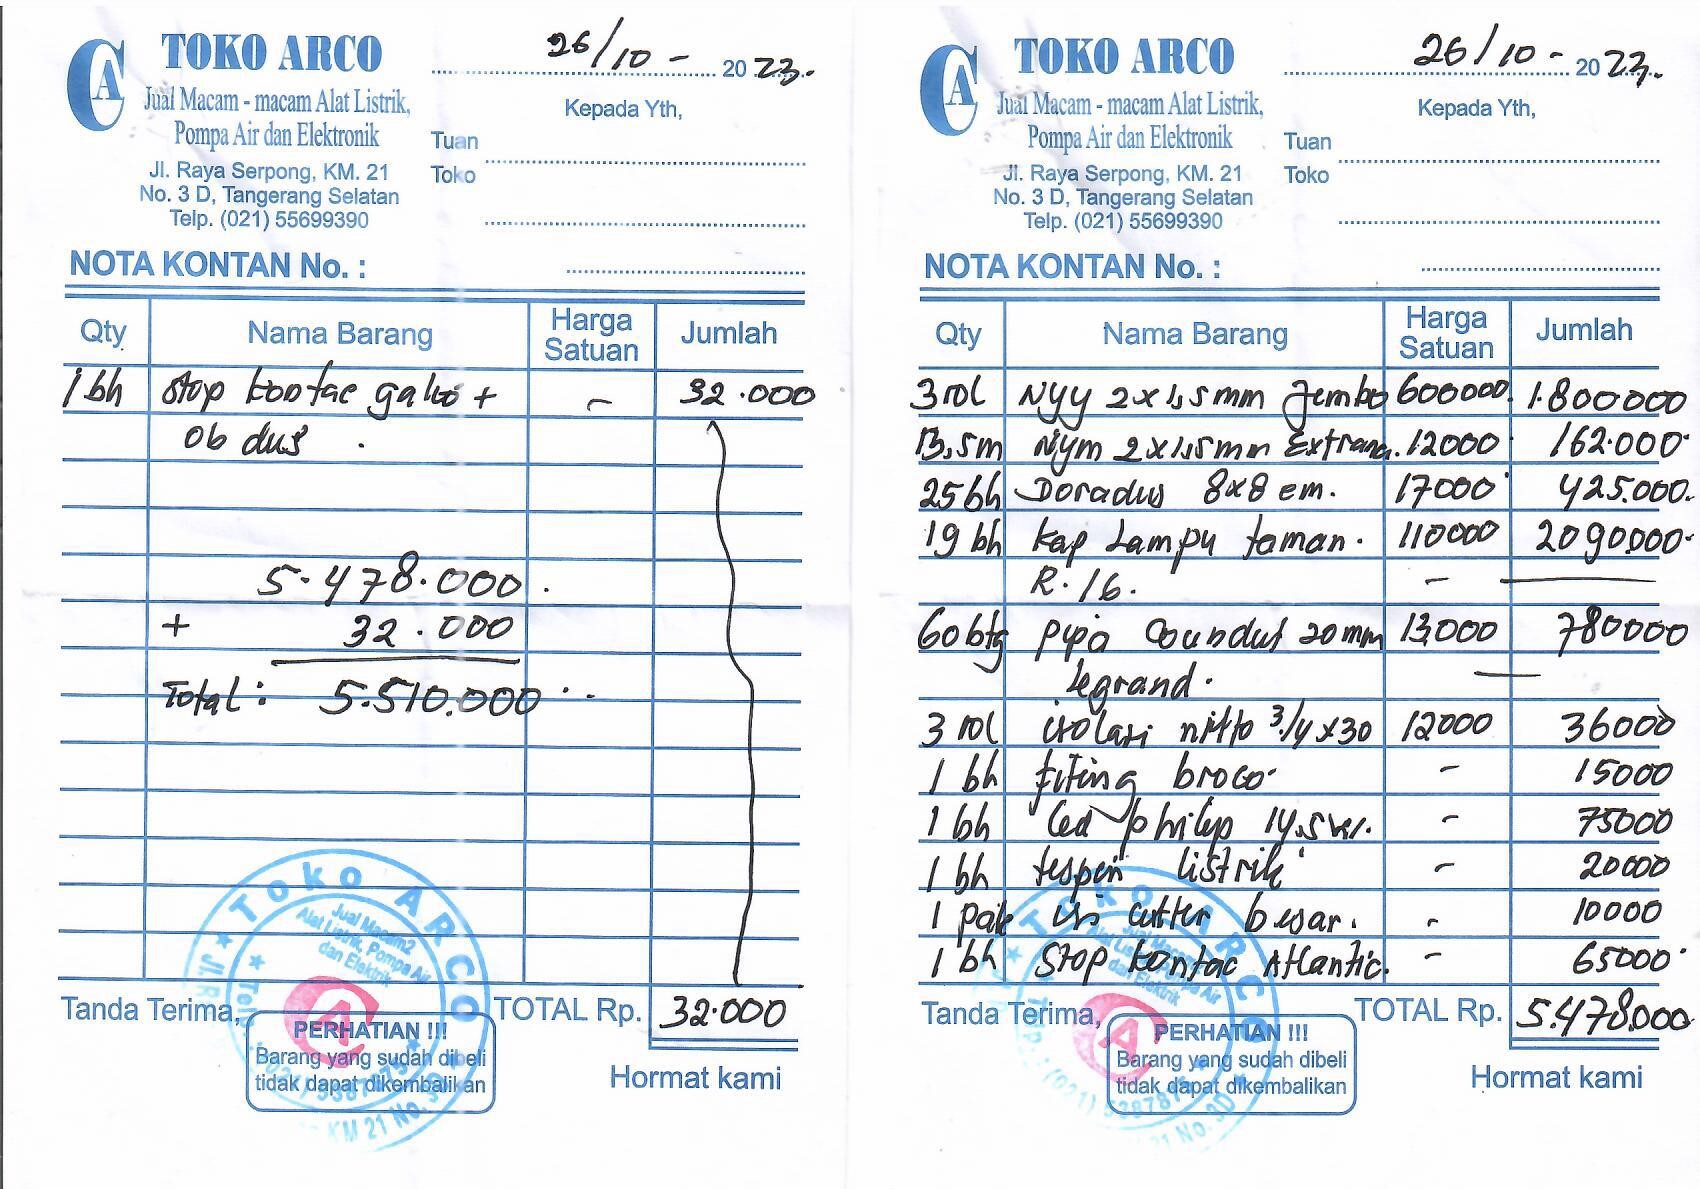 CA
TOKO ARCO
Jual Macam - macam Alat Listrik,
Pompa Air dan Elektronik
Jl. Raya Serpong, KM. 21
No. 3 D, Tangerang Selatan
Telp. (021) 55699390
26/10 - 2023.
Kepada Yth,
Tuan
Toko
NOTA KONTAN No. :
Qty Nama Barang Harga Satuan Jumlah
1 bh Stop kontac + - 32.000
Ob dus
5.478.000
+ 32.000
Total : 5.510.000
Tanda Terima, TOTAL Rp. 32.000
PERHATIAN !!!
Barang yang sudah dibeli
tidak dapat dikembalikan
Hormat kami
TOKO ARCO
Jual Macam2
Alat Listrik, Pompa Air
dan Elektrik
CA
TOKO ARCO
Jual Macam - macam Alat Listrik,
Pompa Air dan Elektronik
Jl. Raya Serpong, KM. 21
No. 3 D, Tangerang Selatan
Telp. (021) 55699390
26/10 - 2023.
Kepada Yth,
Tuan
Toko
NOTA KONTAN No. :
Qty Nama Barang Harga Satuan Jumlah
3 rol NYY 2x1,5mm Jembo 600000 1.800000
13,5m Nym 2x1,5mm Extrana. 12000 162.000
25 bh Doradus 8x8 em. 17000 425.000
19 bh Kap Lampu taman. 110000 2090.000
R.16. -
60 btg pipa Coundut 20mm 13,000 780000
Legrand.
3 rol isolasi nitto 3/4x30 12000 36000
1 bh fiting broco. - 15000
1 bh Led philip 14,5w. - 75000
1 bh tespen listrik - 20000
1 pak isi cutter besar. - 10000
1 bh Stop kontac Atlantic. - 65000
Tanda Terima, TOTAL Rp. 5.478.000
PERHATIAN !!!
Barang yang sudah dibeli
tidak dapat dikembalikan
Hormat kami